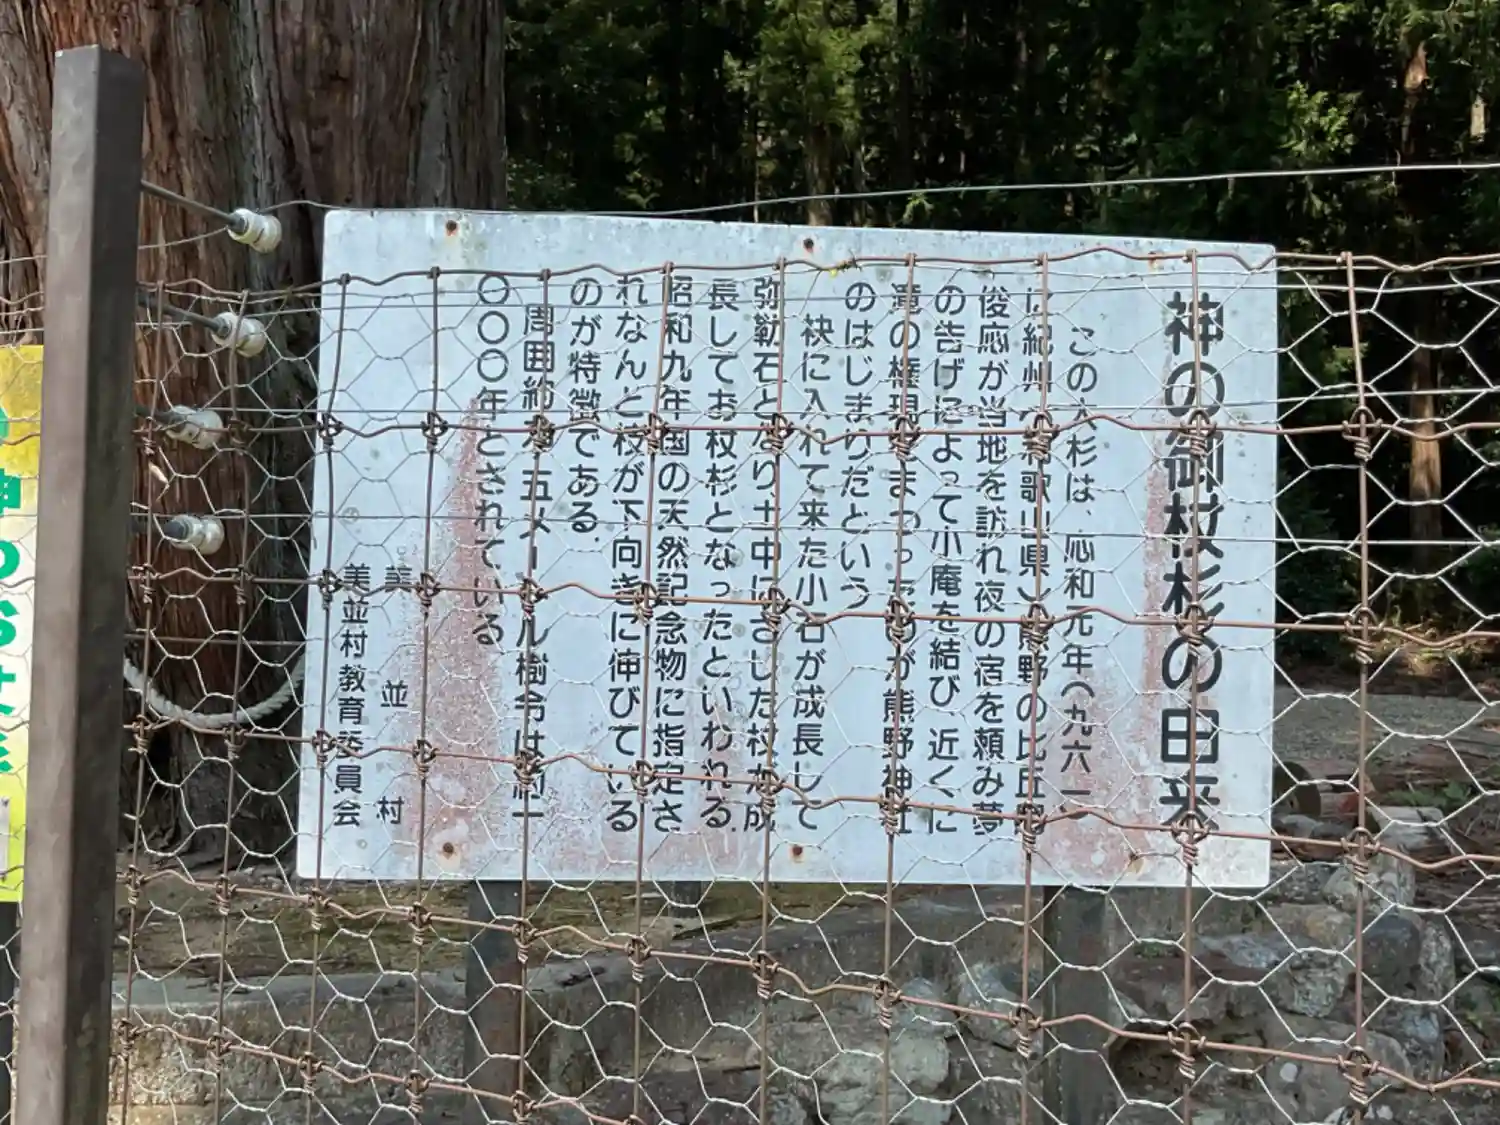 神の御杖杉の由来
この大杉は、応和元年(九六一)
に紀州(和歌山県)熊野の比丘尼
俊応が当地を訪れ夜の宿を頼み夢
の告げによって小庵を結び、近くに
滝の権現をまつったのが熊野神社
のはじまりだという
袂に入れて来た小石が成長して
弥勒石となり土中にさした杖が成
長してお杖杉となったといわれる.
昭和九年国の天然記念物に指定さ
れなんと枝が下向きに伸びている
のが特徴である.
周囲約九、五メートル樹令は約一
〇〇〇年とされている
美並村
美並村教育委員会